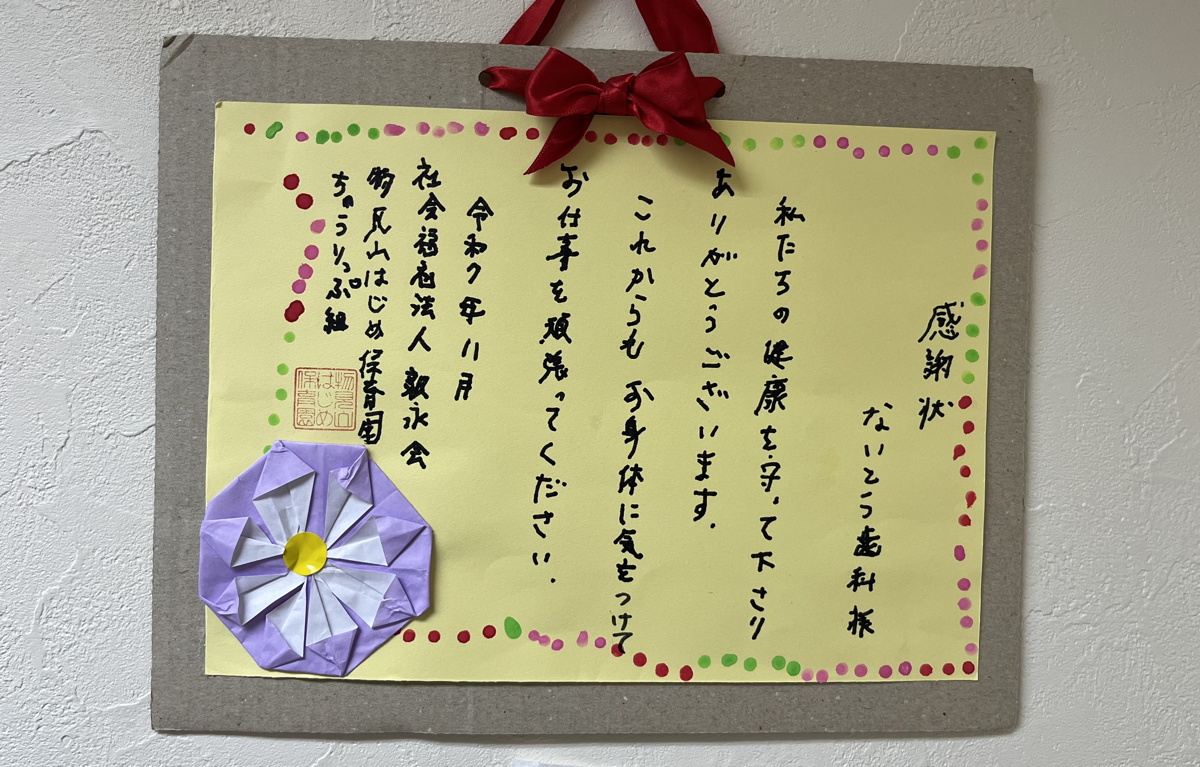 感謝状
ないとう歯科様
私たちの健康を守って下さり
ありがとうございます。
これからも お身体に気をつけて
お仕事を頑張ってください。
令和7年11月
社会福祉法人 毅永会
物見山はじめ保育園
ちゅうりっぷ組
物見山
はじめ
保育園